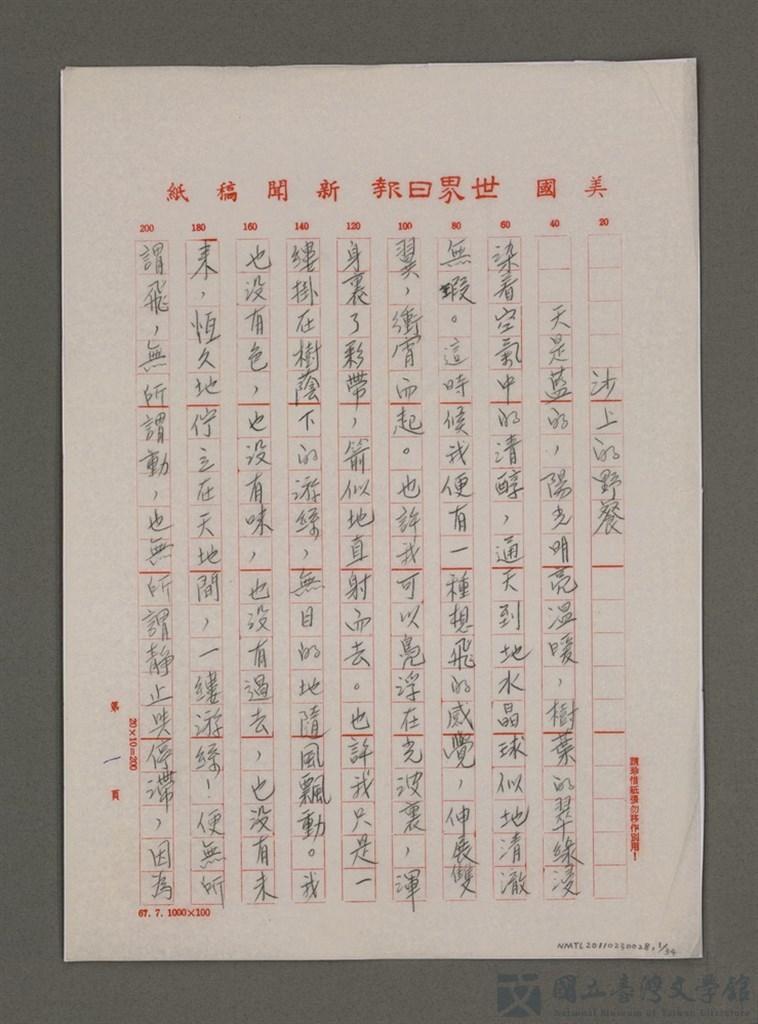 美國世界日報新聞稿紙
20
40
60
80
100
120
140
160
180
200
沙上的野餐
天是藍的，陽光明亮溫暖，樹葉的翠綠浸
染着空氣中的清醇，通天到地水晶球似地清澈
無瑕。這時候我便有一種想飛的感覺，伸展雙
翼，衝霄而起。也許我可以鳧浮在光波裏，渾
身裹了彩帶，箭似地直射而去。也許我只是一
縷掛在樹蔭下的游絲，無目的地隨風飄動。我
也沒有色，也沒有味，也沒有過去，也沒有未
來，恆久地佇立在天地間，一縷游絲！便無所
謂飛，無所謂動，也無所謂靜止與停滯，因為
請珍惜紙張勿移作別用！
第一頁
20×10=200
67.7.1000×100
NMTL20110230028.1/34
國立臺灣文學館
National Museum of Taiwan Literature